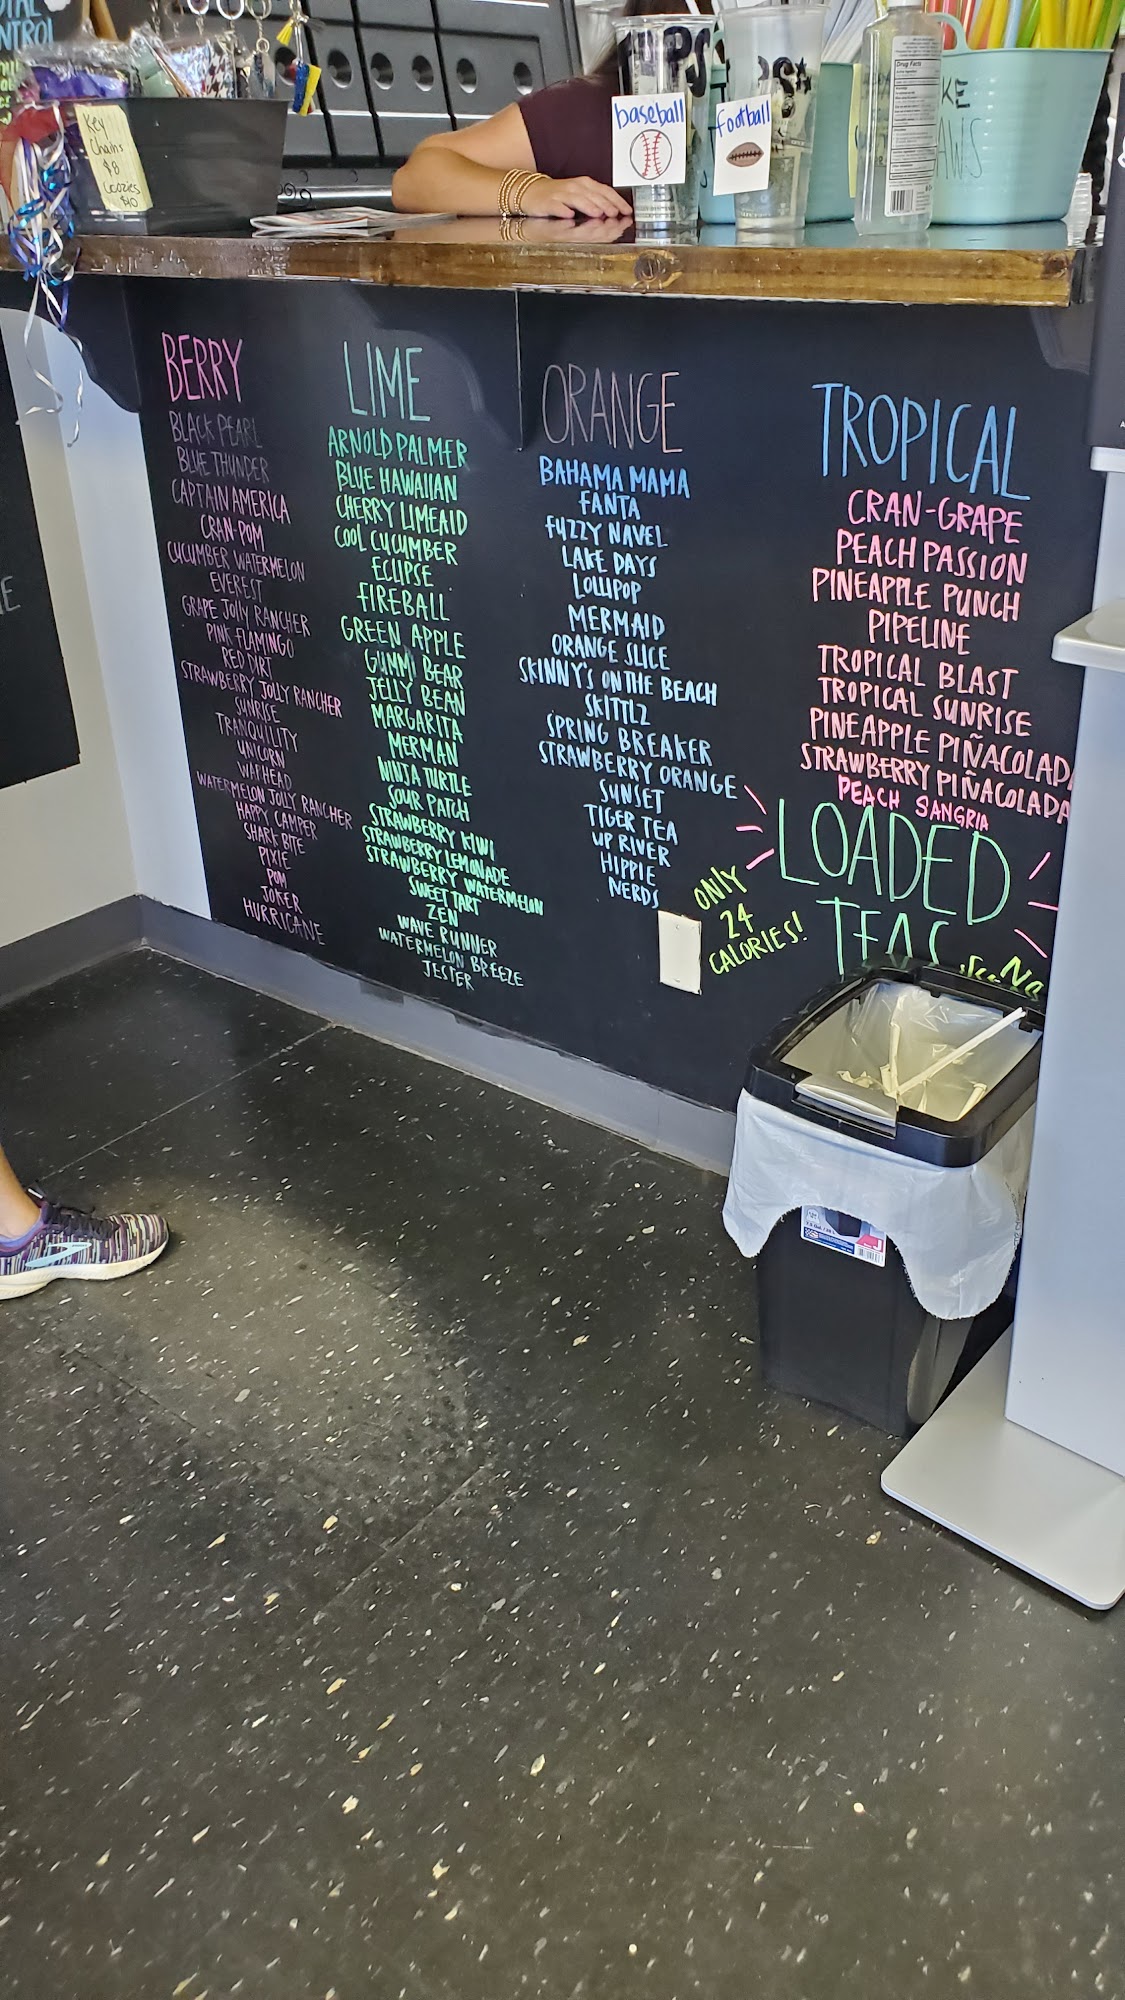 NTROL
Key
Chains
$8
Coozies
$10
baseball
football
Drug Facts
BERRY
BLACK PEARL
BLUE THUNDER
CAPTAIN AMERICA
CRAN-POM
CUCUMBER WATERMELON
EVEREST
GRAPE JOLLY RANCHER
PINK FLAMINGO
RED DIRT
STRAWBERRY JOLLY RANCHER
SUNRISE
TRANQUILITY
UNICORN
WARHEAD
WATERMELON JOLLY RANCHER
HAPPY CAMPER
SHARK BITE
PIXIE
POM
JOKER
HURRICANE
LIME
ARNOLD PALMER
BLUE HAWAIIAN
CHERRY LIMEAID
COOL CUCUMBER
ECLIPSE
FIREBALL
GREEN APPLE
GUMMI BEAR
JELLY BEAN
MARGARITA
MERMAN
NINJA TURTLE
SOUR PATCH
STRAWBERRY KIWI
STRAWBERRY LEMONADE
STRAWBERRY WATERMELON
SWEET TART
ZEN
WAVE RUNNER
WATERMELON BREEZE
JESTER
ORANGE
BAHAMA MAMA
FANTA
FUZZY NAVEL
LAKE DAYS
LOLLIPOP
MERMAID
ORANGE SLICE
SKINNY'S ON THE BEACH
SKITTLZ
SPRING BREAKER
STRAWBERRY ORANGE
SUNSET
TIGER TEA
UP RIVER
HIPPIE
NERDS
TROPICAL
CRAN-GRAPE
PEACH PASSION
PINEAPPLE PUNCH
PIPELINE
TROPICAL BLAST
TROPICAL SUNRISE
PINEAPPLE PIÑACOLADA
STRAWBERRY PIÑACOLADA
PEACH SANGRIA
LOADED
TEAS
ONLY
24
CALORIES!